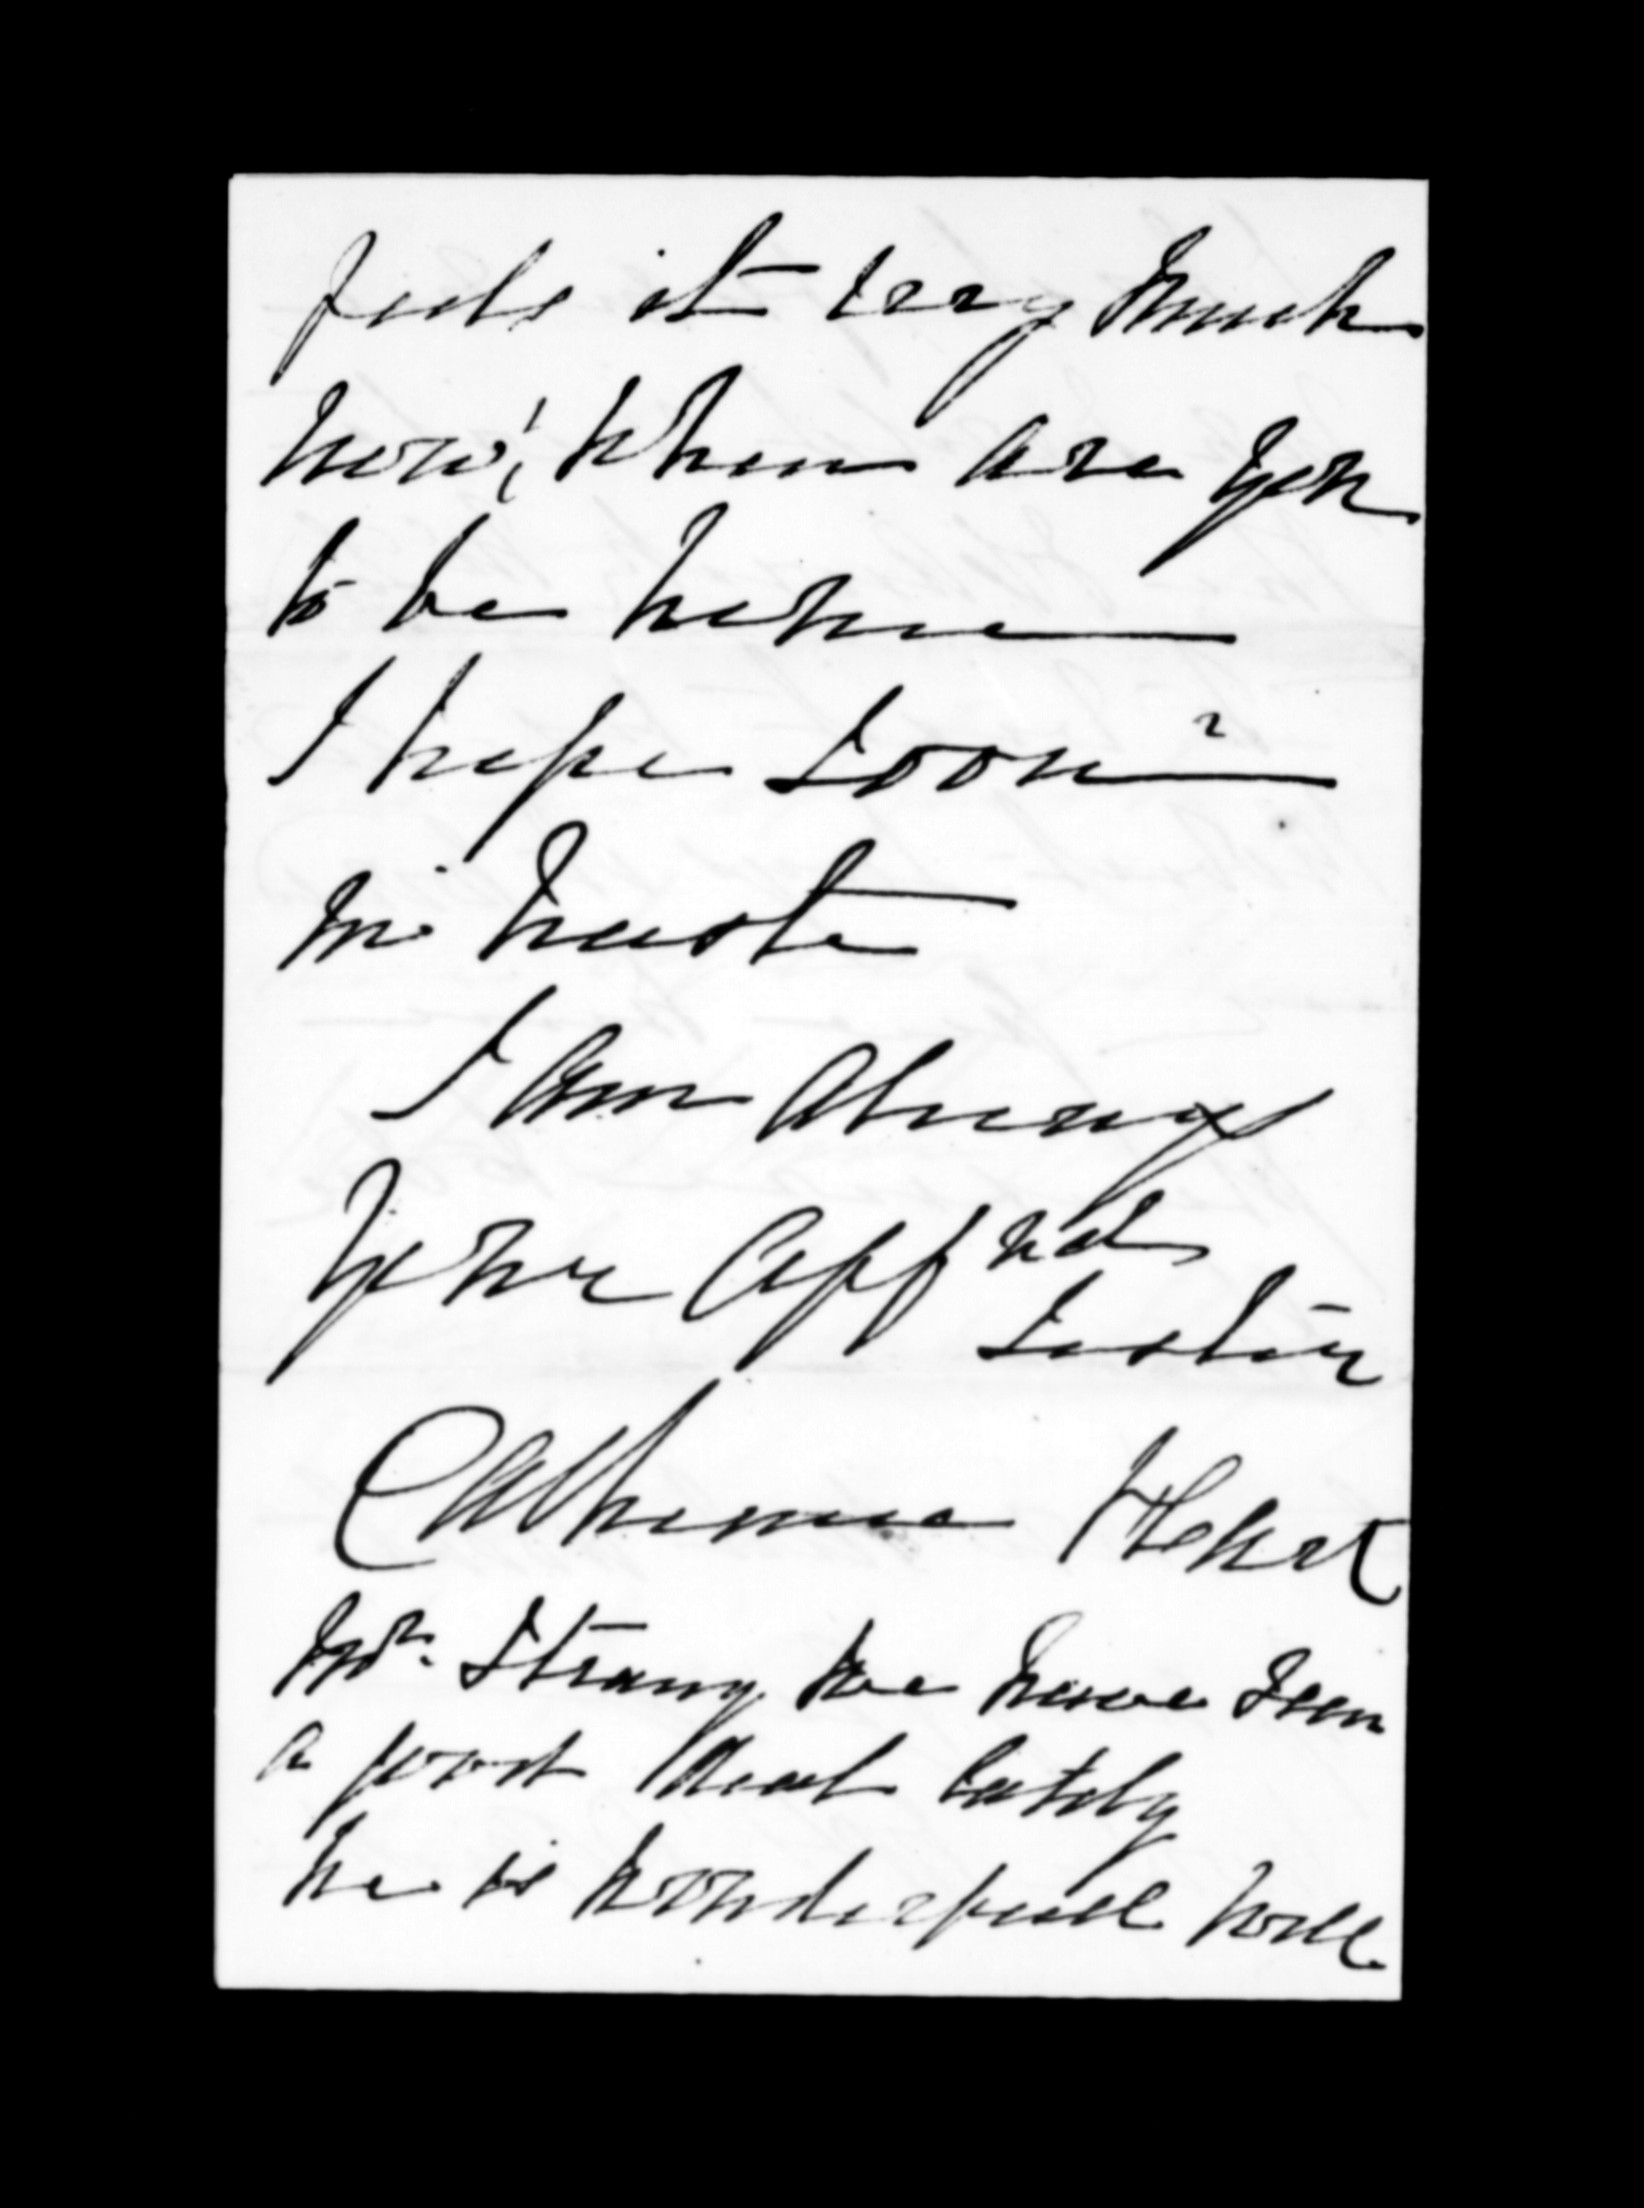 feels it very much
now; When are you
to be home
I hope soon?
in haste
I am always
Your Aff nate
Sister
Catherine Hart
Mr. Strang we have seen
a good deal lately
he is wonderfull well